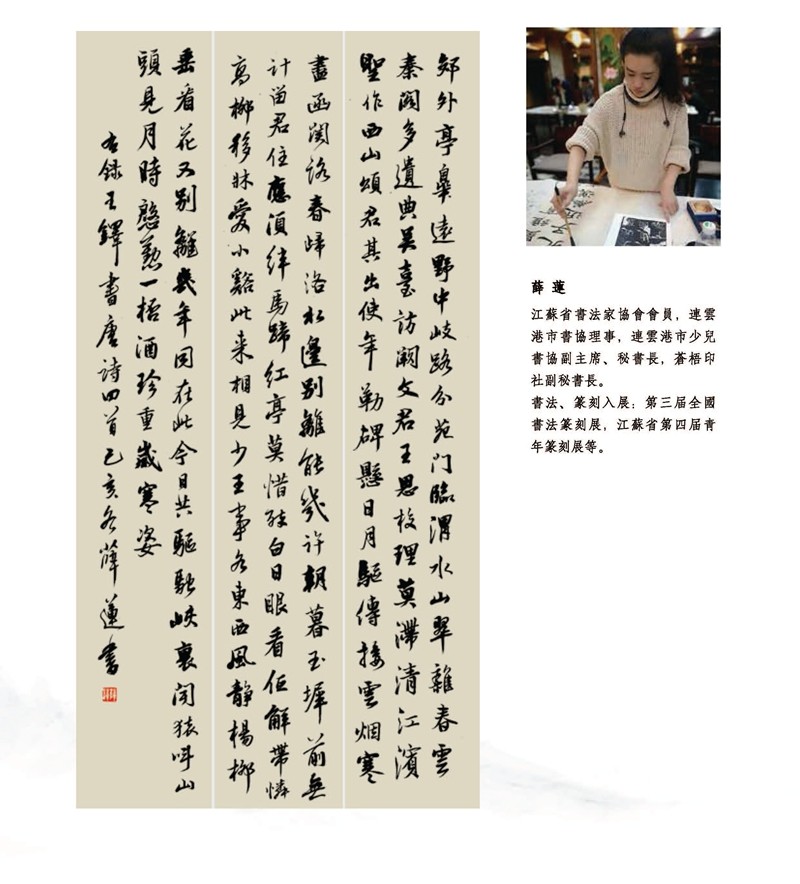 郊外亭皋遠野中岐路分苑門臨渭水山翠雜春雲
秦閣多遺典吴臺訪闕文君王思校理莫滯清江濱
聖作西山頌君其出使年勒碑懸日月驅傳接雲烟寒
盡函關路春歸洛水邊别離能幾許朝暮玉墀前無
計留君住應須絆馬蹄紅亭莫惜醉白日眼看低解帶憐
高柳移牀愛小谿此来相見少王事各東西風静楊柳
垂看花又别離幾年同在此今日共驅馳峽裏聞猿叫山
頭見月時慇懃一桮酒珍重歲寒姿
右録王鐸書唐詩四首己亥冬薛蓮書
薛 蓮
江蘇省書法家協會會員，連雲
港市書協理事，連雲港市少兒
書協副主席、秘書長，蒼梧印
社副秘書長。
書法、篆刻入展：第三届全國
書法篆刻展，江蘇省第四届青
年篆刻展等。